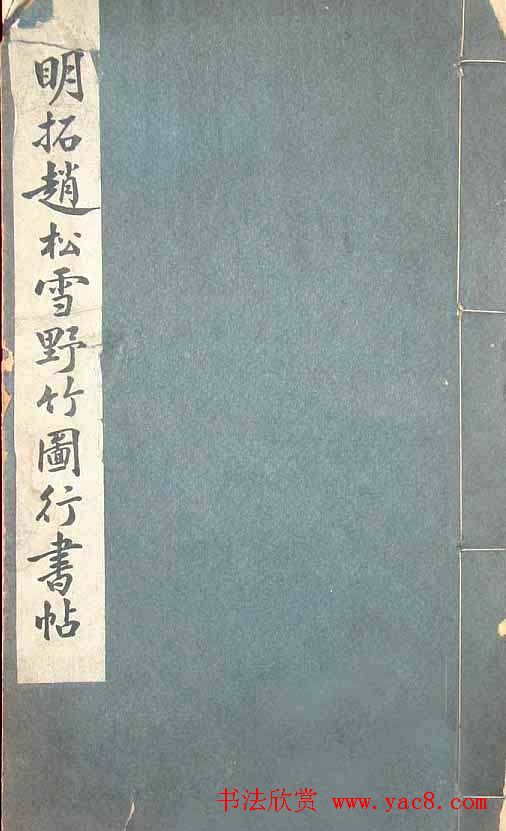 明拓趙松雪野竹圖行書帖
书法欣赏 www.yac8.com